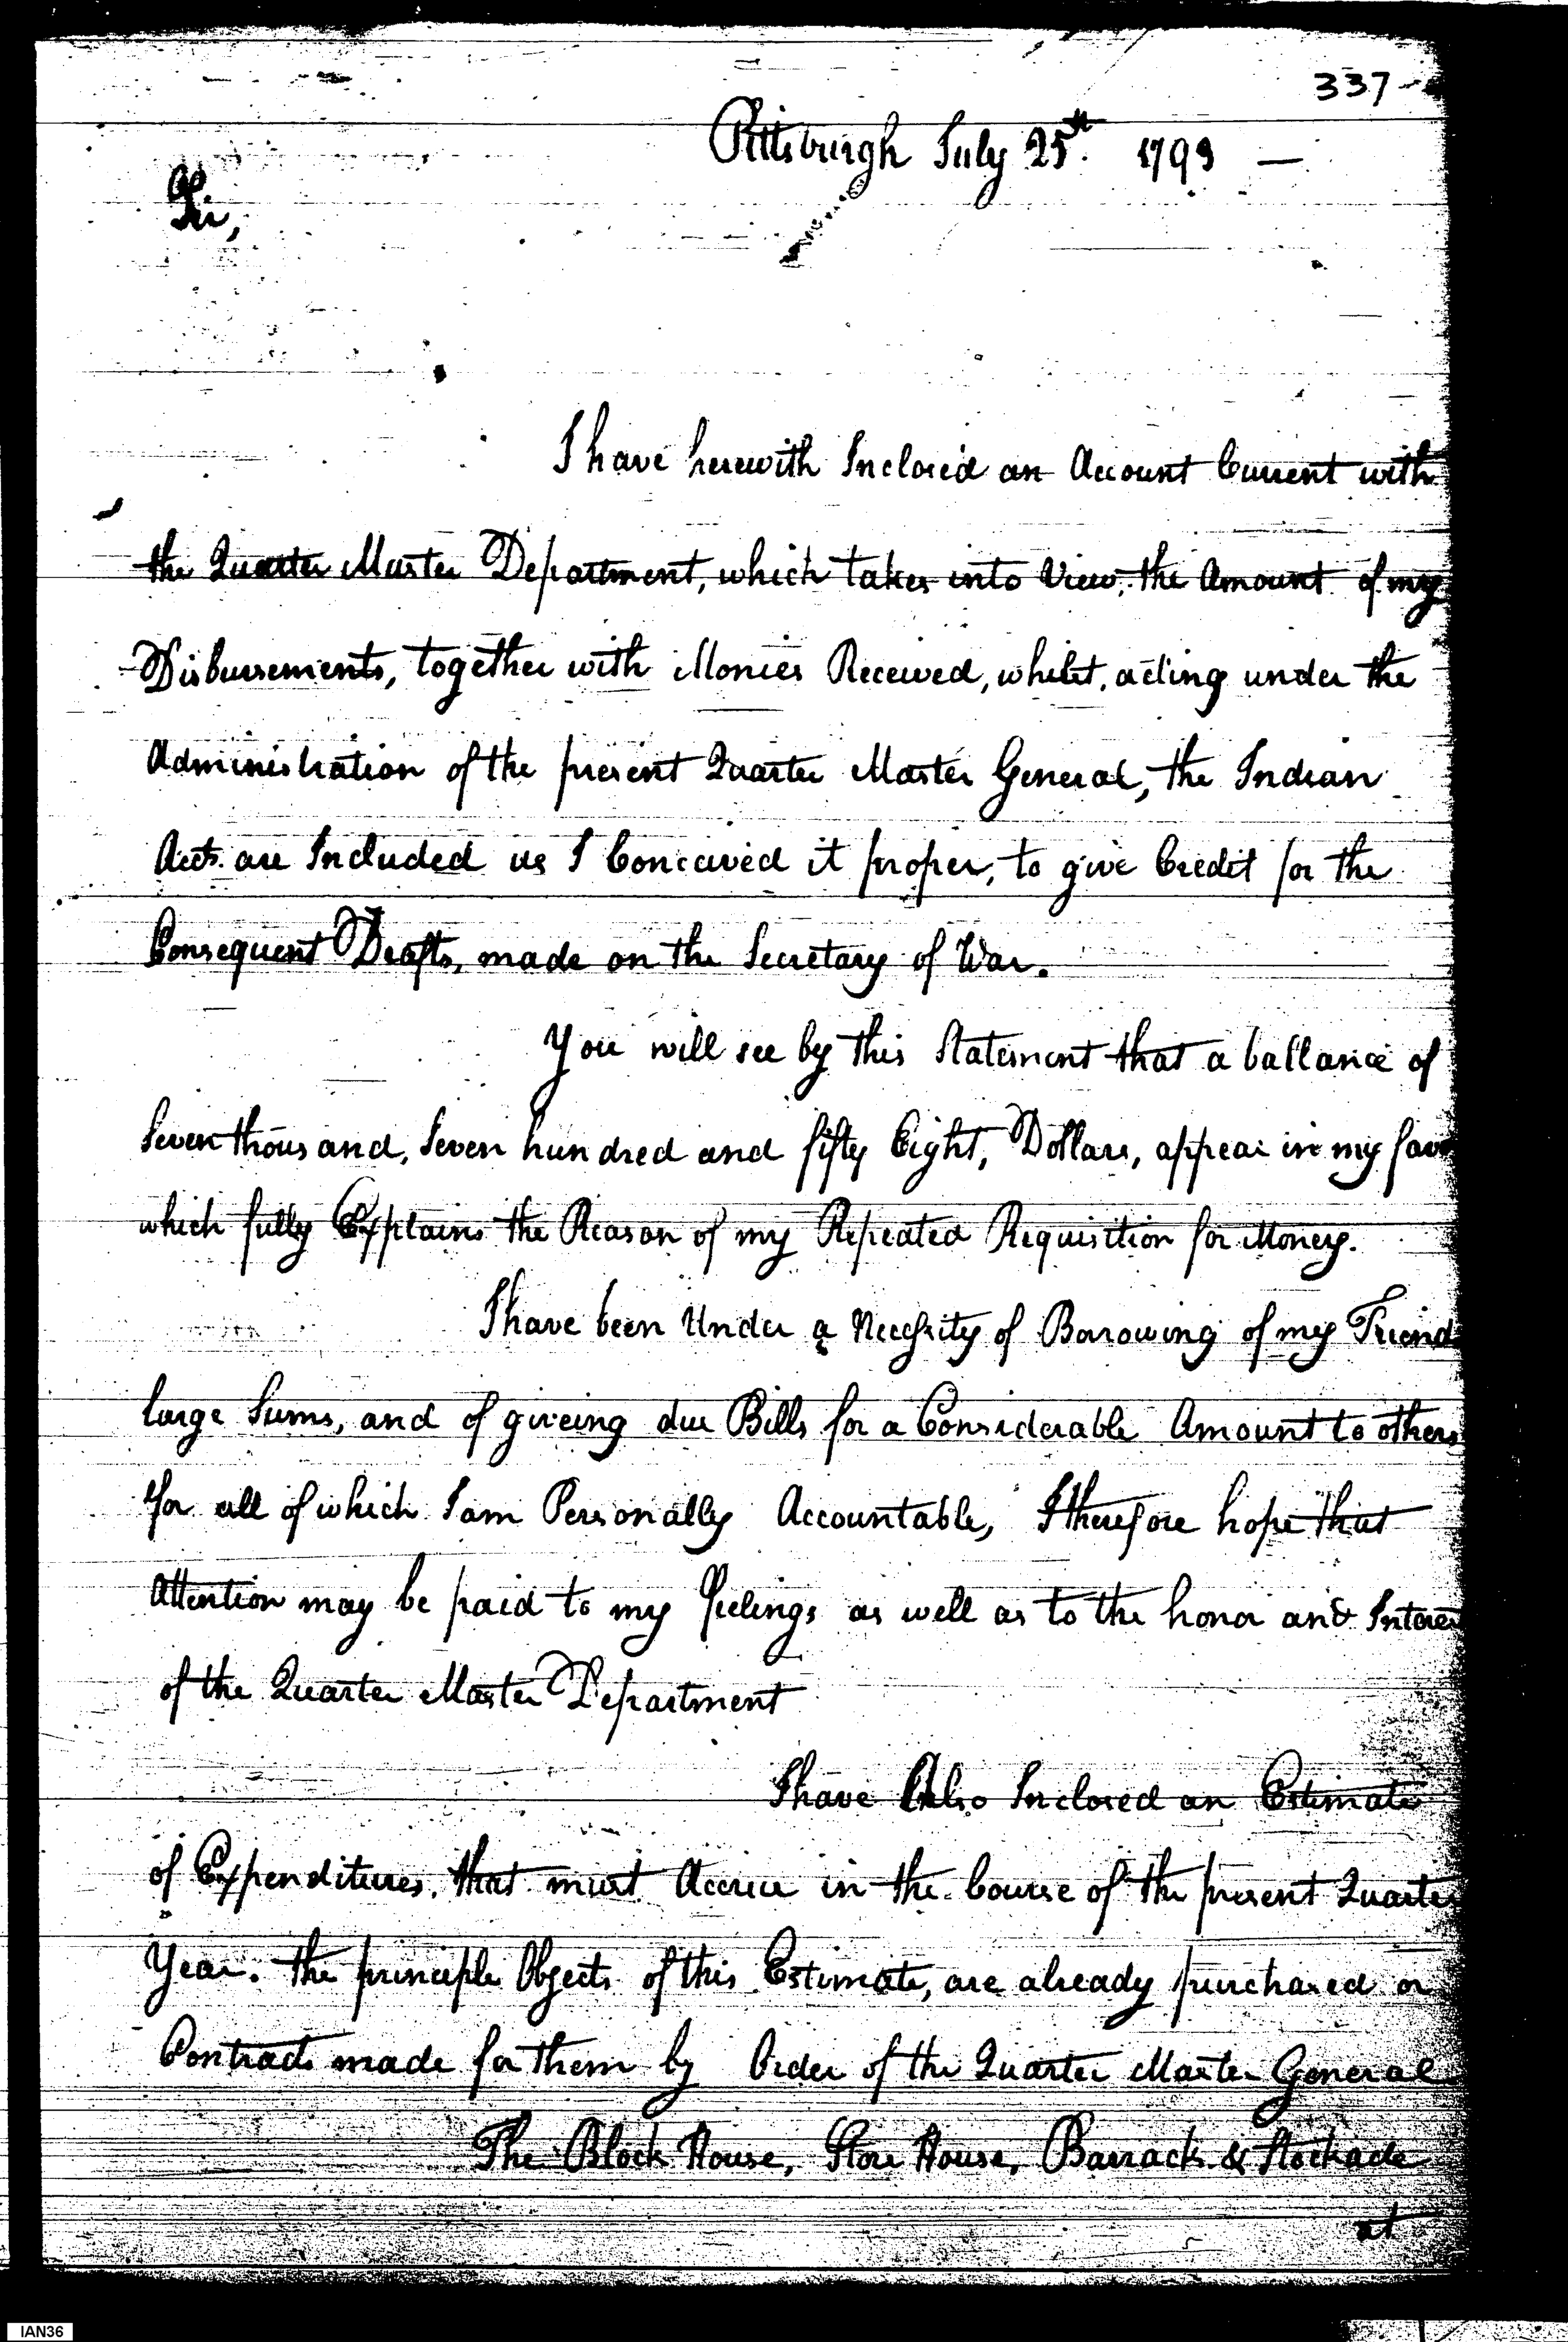 337
Pittsburgh July 25th. 1793 —
Sir,
I have herewith Inclosed an Account Current with
the Quarter Master Department, which takes into View, the Amount of my
Disbursements, together with Monies Received, whilst, acting under the
Administration of the present Quarter Master General, the Indian
Accts. are Included as I Conceived it proper, to give Credit for the
Consequent Drafts, made on the Secretary of War.
You will see by this Statement that a ballance of
Seven thousand, Seven hundred and fifty Eight, Dollars, appear in my fav
which fully Explains the Reason of my Repeated Requisition for Money.
I have been Under a Necessity of Borrowing of my Friend
large Sums, and of giveing due Bills for a Considerable Amount to others
for all of which I am Personally Accountable, I therefore hope that
Attention may be paid to my feelings as well as to the honor and Interes
of the Quarter Master Department
I have Also Inclosed an Estimate
of Expenditures, that must Accrue in the Course of the present Quarter
Year. the principle Objects of this Estimate, are already purchased or
Contracts made for them by Order of the Quarter Master General
The Block House, Store House, Barracks & Stockade
at
IAN36